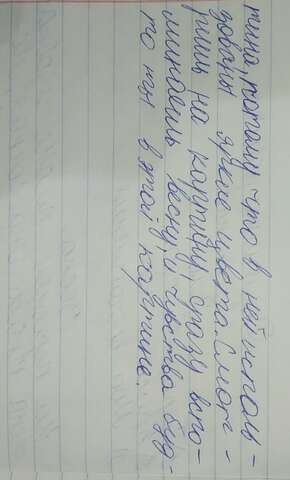 тина, потому что в ней исполь-
зованы яркие цвета. Смот-
ришь на картину, сразу вспо-
минаешь весну, и чувства буд-
то ты в этой картине.